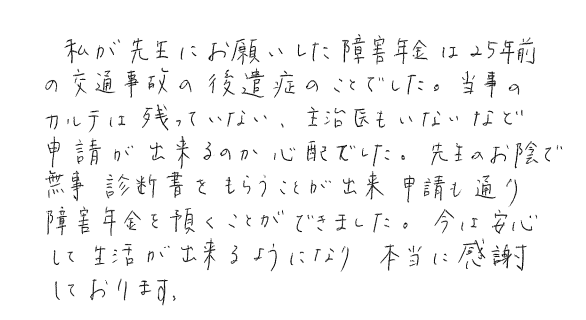 私が先生にお願いした障害年金は25年前
の交通事故の後遺症のことでした。当事の
カルテは残っていない、主治医もいないなど
申請が出来るのか心配でした。先生のお陰で
無事 診断書をもらうことが出来 申請も通り
障害年金を預くことができました。今は安心
して生活が出来るようになり 本当に感謝
しております。